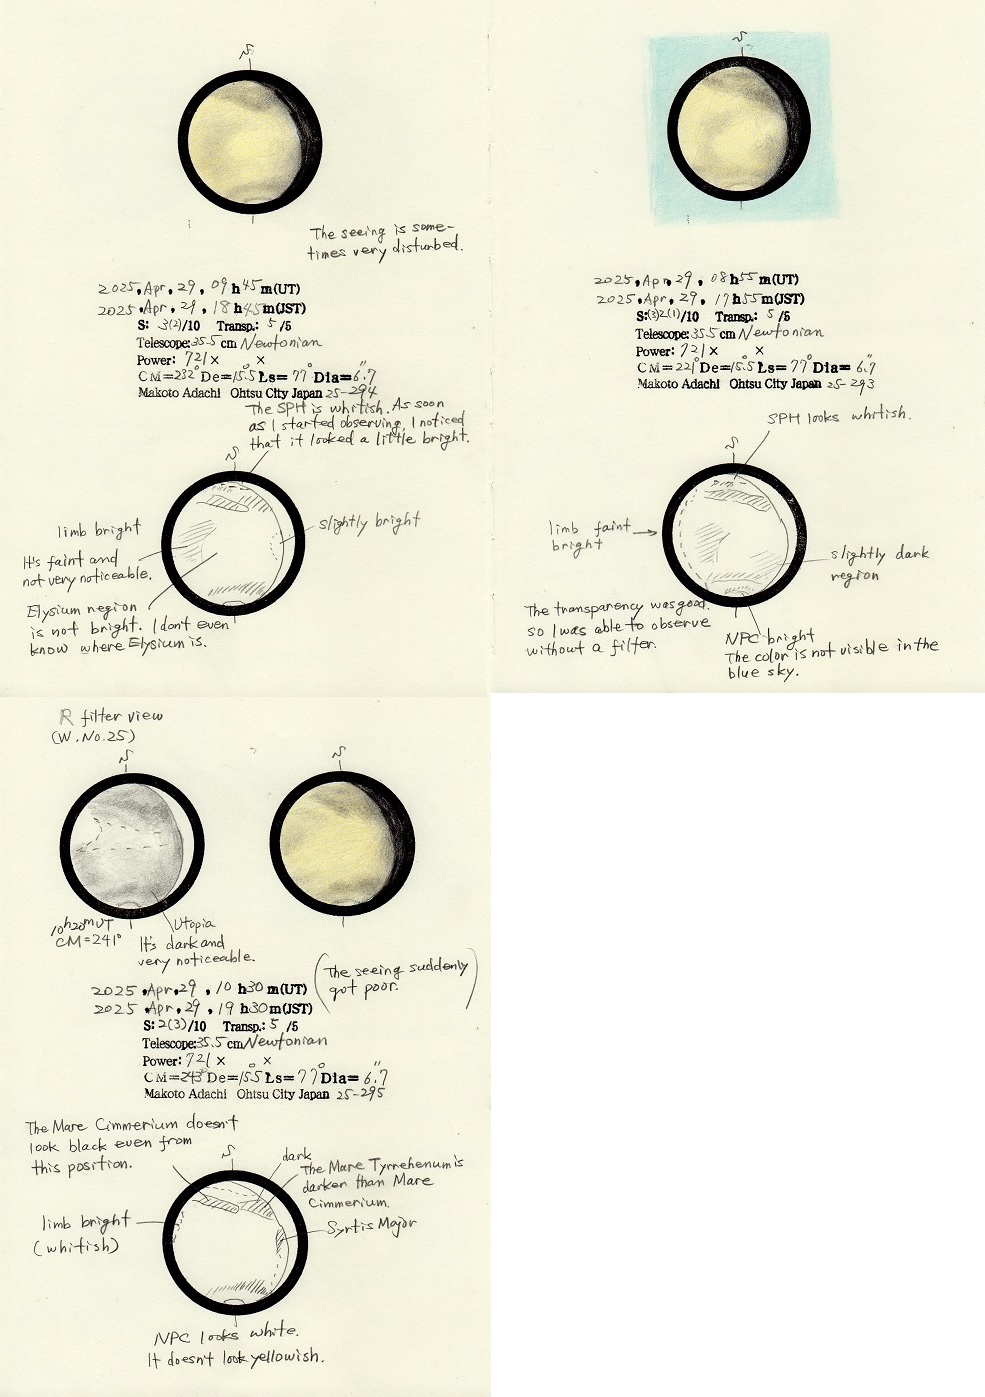 S
The seeing is some-
times very disturbed.
2025, Apr, 29, 09 h 45 m(UT)
2025, Apr, 29, 18 h 45 m(JST)
S: 3(2)/10 Transp.: 5 /5
Telescope: 35.5 cm Newtonian
Power: 721 × ×
CM=232° De=15.5° Ls=77° Dia=6.7"
Makoto Adachi Ohtsu City Japan 25-294
The SPH is whitish. As soon
as I started observing, I noticed
that it looked a little bright.
S
limb bright
slightly bright
It's faint and
not very noticeable.
Elysium region
is not bright. I don't even
know where Elysium is.
S
2025, Apr, 29, 08 h 55 m(UT)
2025, Apr, 29, 17 h 55 m(JST)
S:(3)2(1)/10 Transp.: 5 /5
Telescope: 35.5 cm Newtonian
Power: 721 × ×
CM=221° De=15.5° Ls=77° Dia=6.7"
Makoto Adachi Ohtsu City Japan 25-293
SPH looks whitish.
S
limb faint
bright
slightly dark
region
The transparency was good.
so I was able to observe
without a filter.
NPC bright
The color is not visible in the
blue sky.
R filter view
(W. No. 25)
S
S
10h20mUT
CM=241°
Utopia
It's dark and
very noticeable.
(The seeing suddenly
got poor.)
2025, Apr, 29, 10 h 30 m(UT)
2025, Apr, 29, 19 h 30 m(JST)
S: 2(3)/10 Transp.: 5 /5
Telescope: 35.5 cm Newtonian
Power: 721 × ×
CM=243° De=15.5° Ls=77° Dia=6.7"
Makoto Adachi Ohtsu City Japan 25-295
The Mare Cimmerium doesn't
look black even from
this position.
S
dark
The Mare Tyrrehenum is
darker than Mare
Cimmerium.
Syrtis Major
limb bright
(whitish)
NPC looks white.
It doesn't look yellowish.